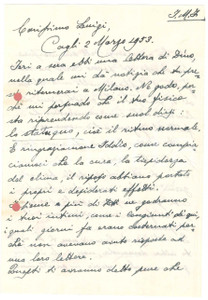 J.M.J.
Carissimo Luigi,
Cagli 2 Marzo 1953.
Ieri a sera ebbi una lettera di Dino,
nella quale mi dà notizia che tu pre-
sto ritornerai a Milano. Ne godo, per-
chè mi persuado che il tuo fisico
sta riprendendo come suol dirsi:
lo statu quo, cioè il ritmo normale.
E ringraziamone Iddio, come compia-
ciamoci che la cura, la tiepidezza
del clima, il riposo abbiano portato
i propri e desiderati effetti.
e più di me ne godranno
i tuoi intimi, come i congiunti di qui,
i quali giorni fa erano costernati per
chè non avevano avuto risposta ad
una loro lettera.
ti avranno detto pure che